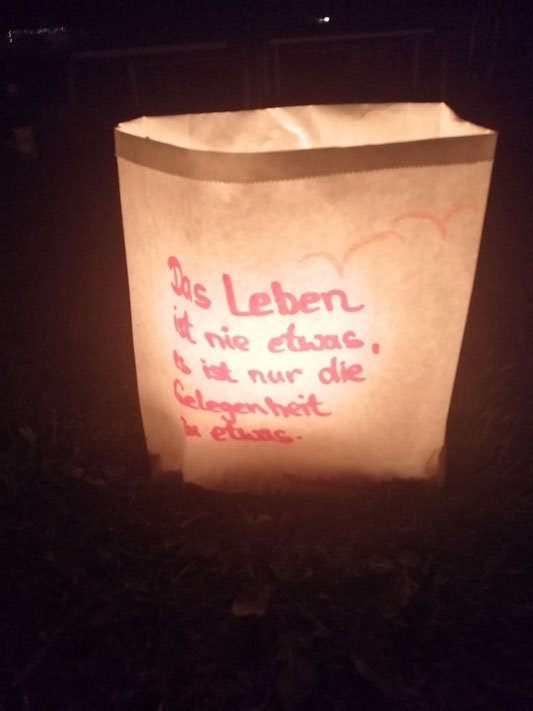 Das Leben
ist nie etwas,
es ist nur die
Gelegenheit
zu etwas.